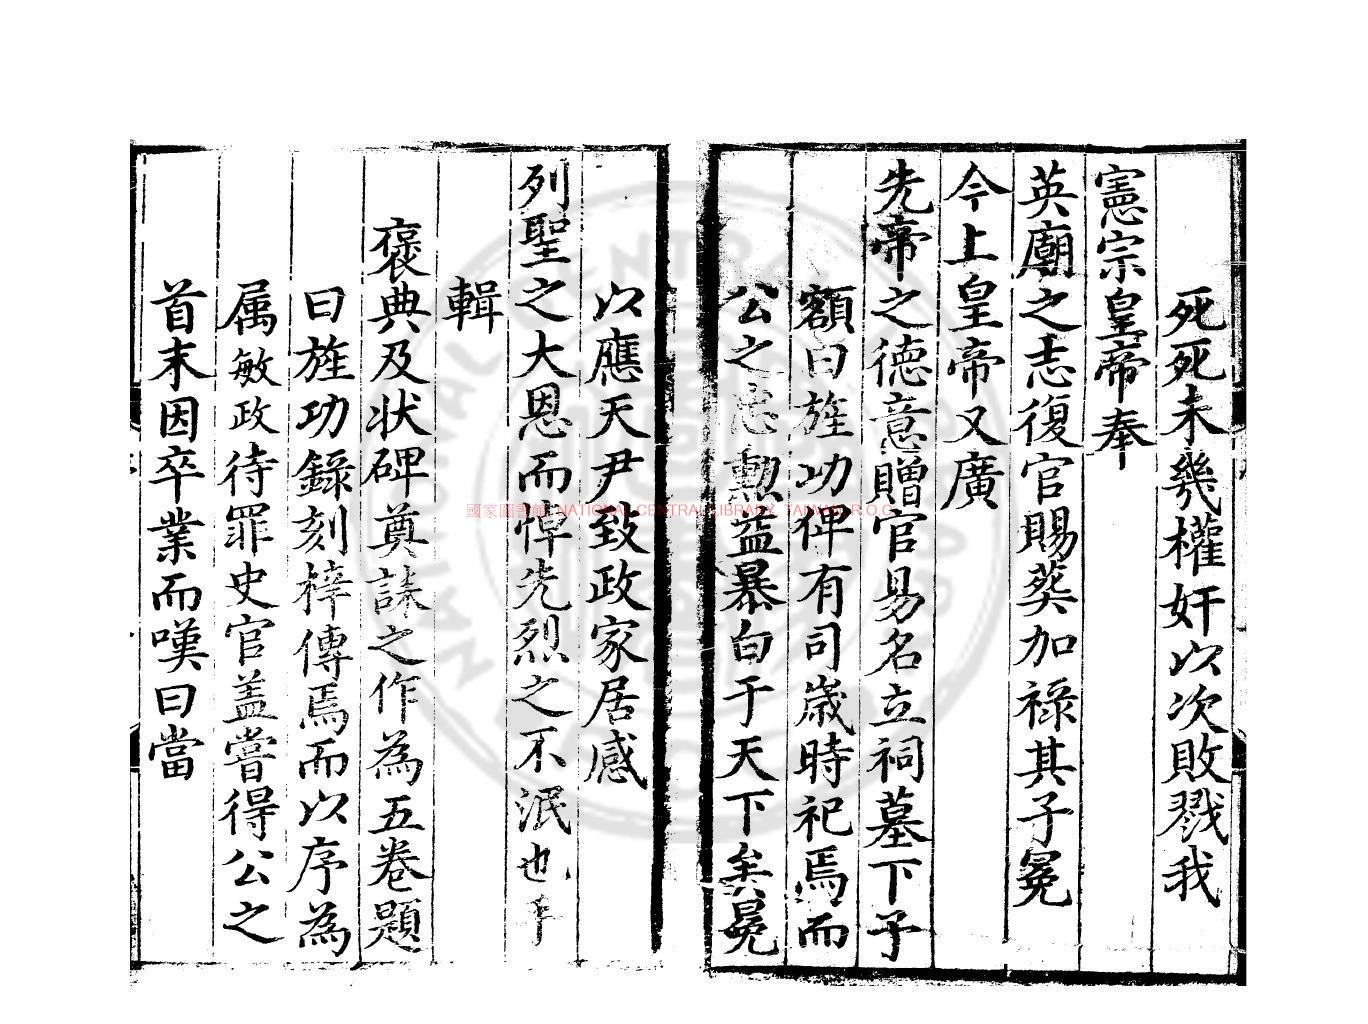 死死未幾權奸以次敗戮我
憲宗皇帝奉
英廟之志復官賜葬加祿其子冕
今上皇帝又廣
先帝之德意贈官易名立祠墓下予
額曰旌功俾有司歲時祀焉而
公之忠勲益暴白于天下矣冕
以應天尹致政家居感
列聖之大恩而悼先烈之不泯也手
輯
褒典及状碑奠誄之作為五卷題
曰旌功錄刻梓傳焉而以序為
属敏政待罪史官盖嘗得公之
首末因卒業而嘆曰當
國家圖書館 NATIONAL CENTRAL LIBRARY, TAIWAN, R.O.C